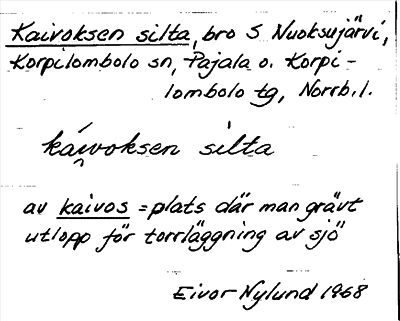 Kaivoksen silta, bro S Nuoksujärvi,
Korpilombolo sn, Pajala o. Korpi-
lombolo tg, Norrb.l.
káivoksen silta
av kaivos = plats där man grävt
utlopp för torrläggning av sjö
Eivor Nylund 1968